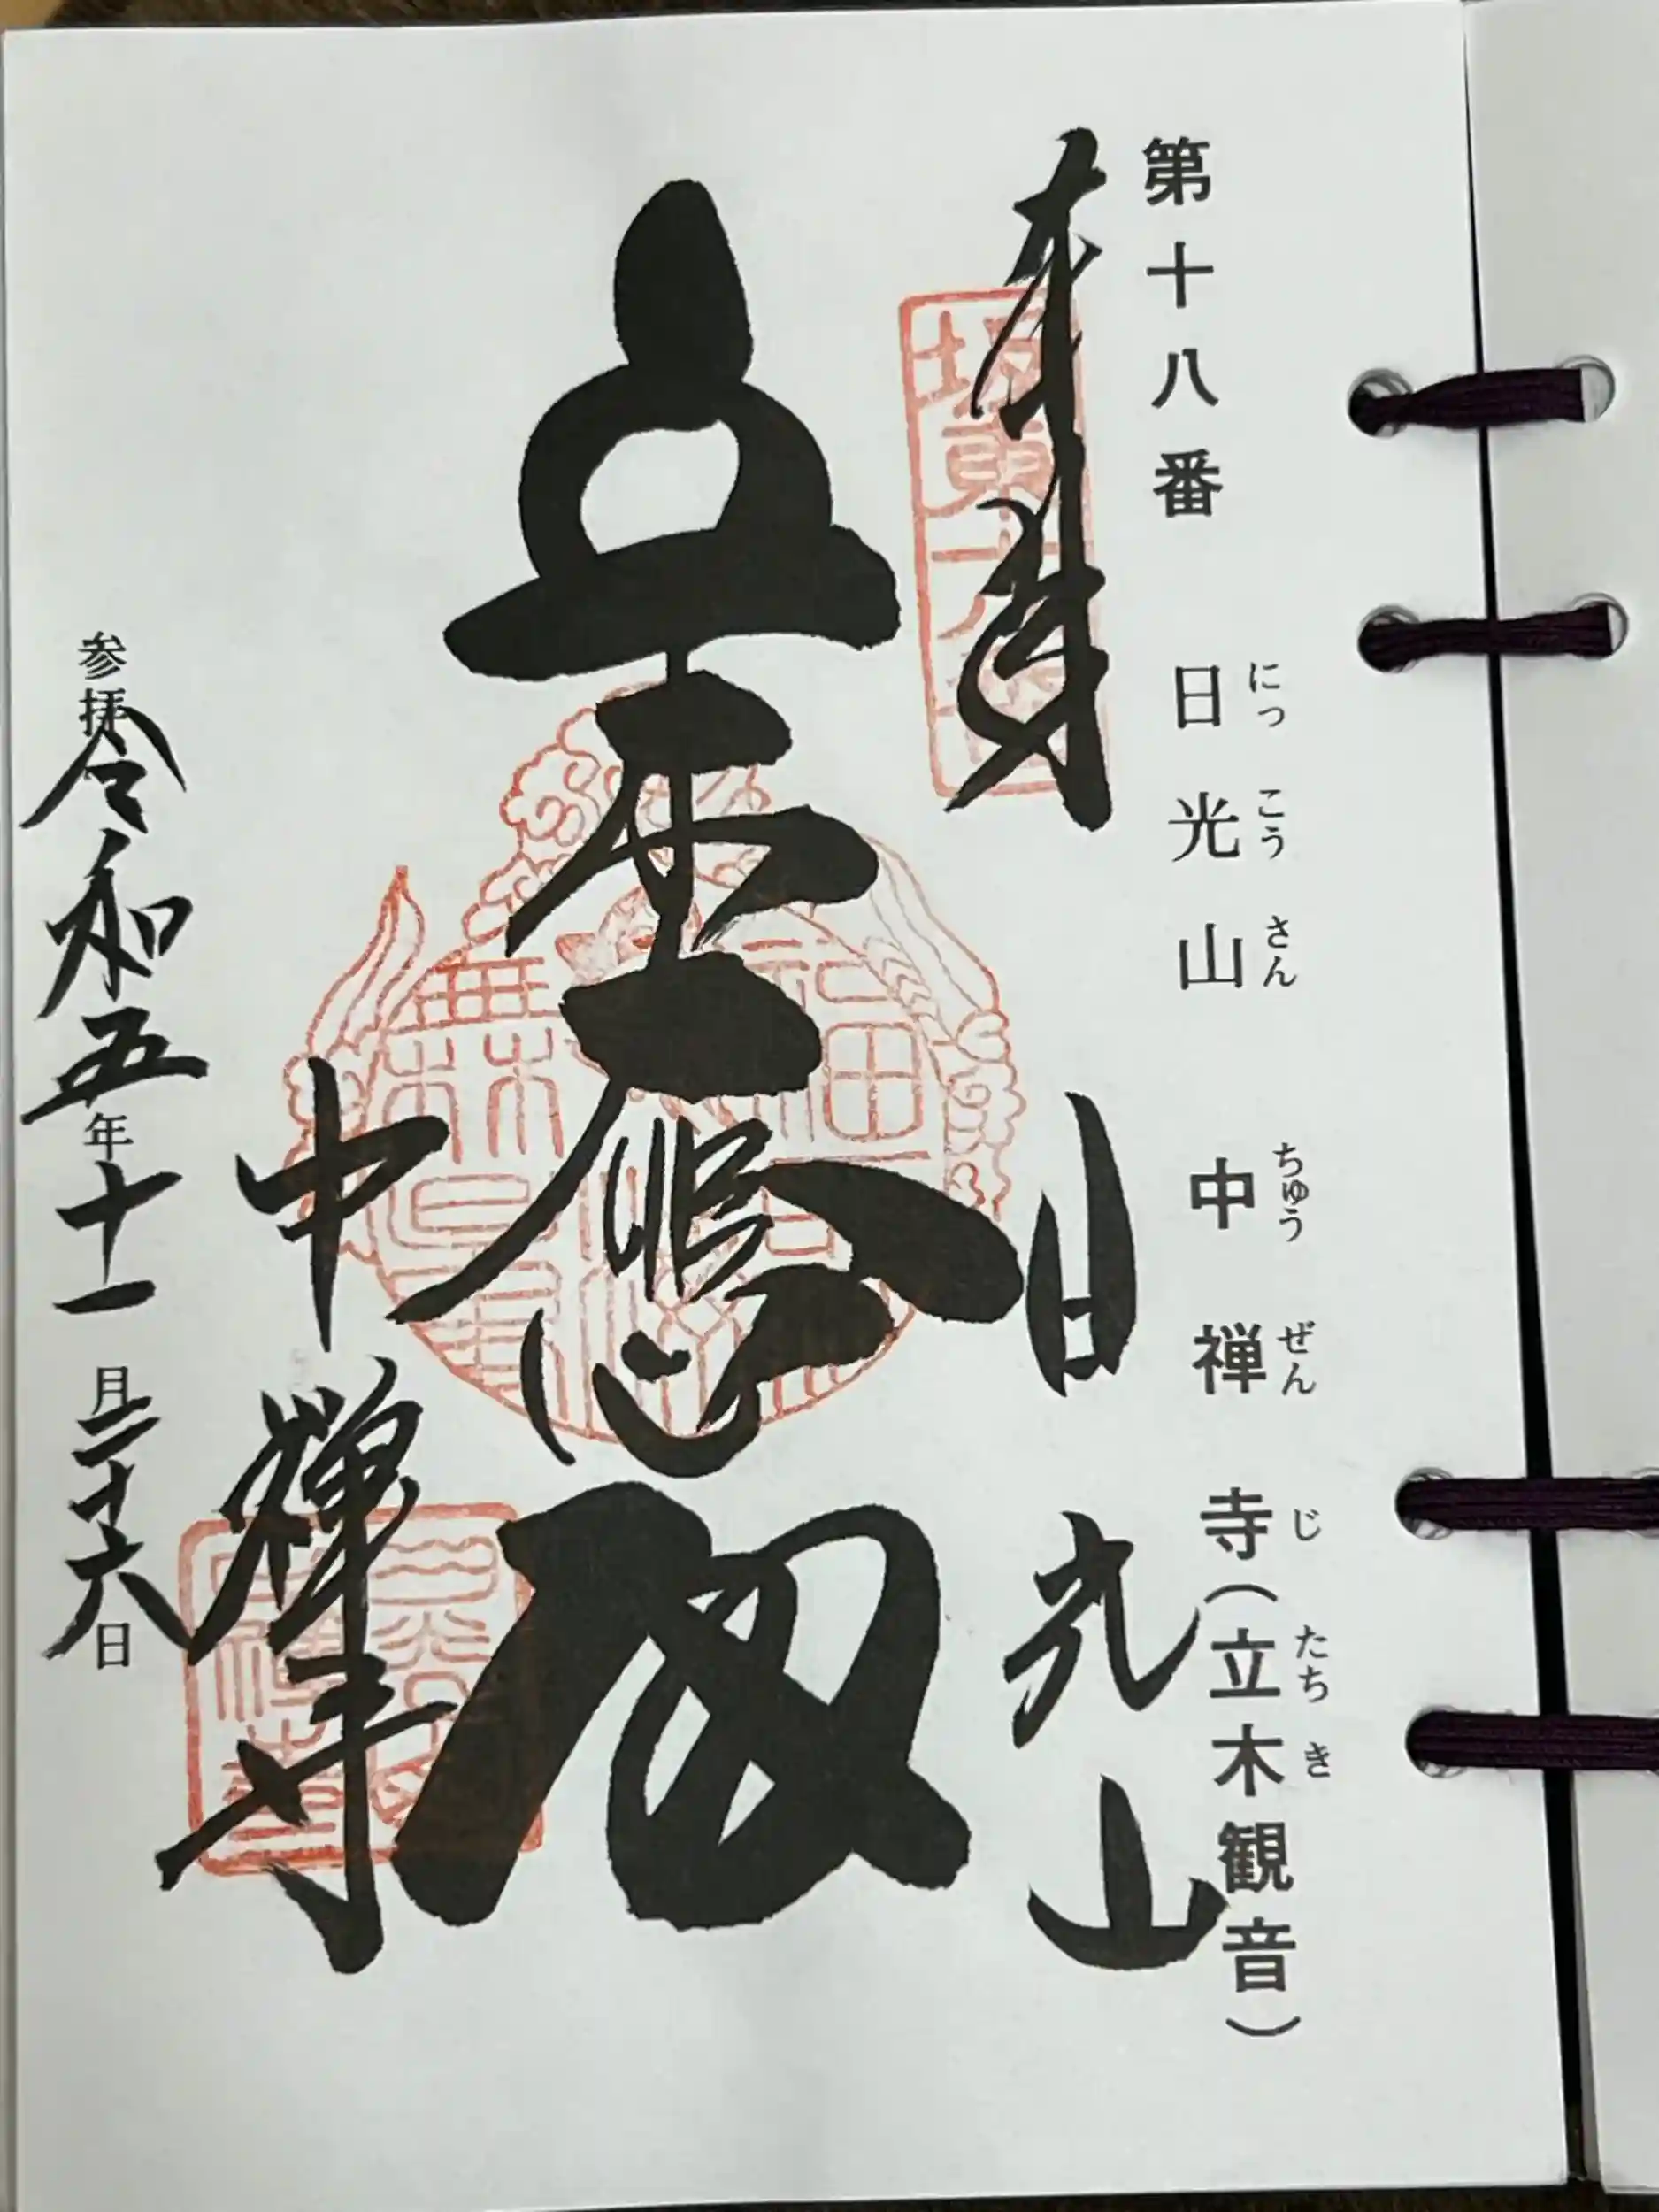 第十八番 日光山 中禅寺(立木観音)
にっ こう さん ちゅう ぜん じ たち き
奉拝
坂東十八番
日光山
立木大悲
福聚海無量
中禅寺
参拝 令和五年十一月二十六日